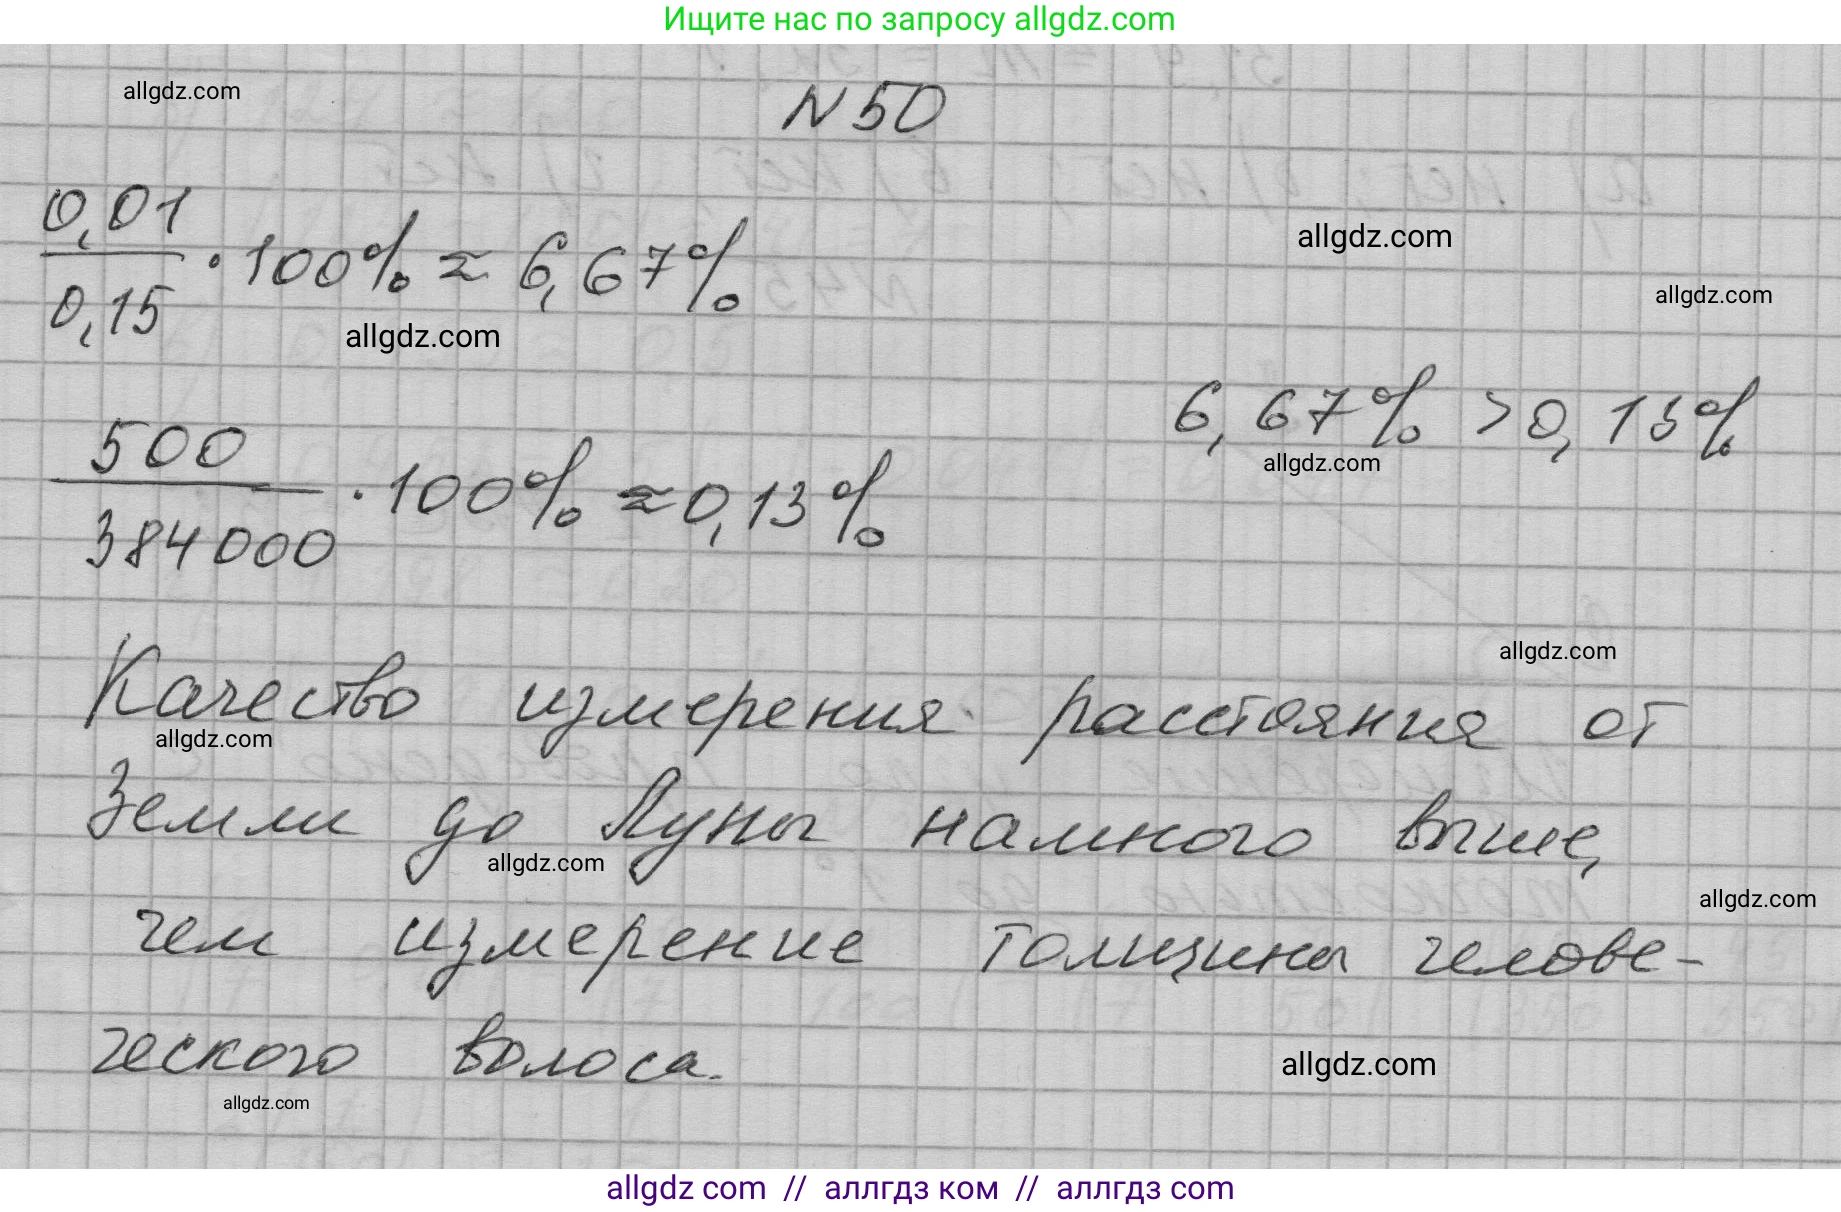 Ищите нас по запросу allgdz.com
allgdz.com
N 50
0,01
0,15
· 100% ≈ 6,67%
allgdz.com
allgdz.com
allgdz.com
500
384000
· 100% ≈ 0,13%
6,67% > 0,13%
allgdz.com
allgdz.com
Качество измерения расстояния от
allgdz.com
Земли до Луны намного выше,
allgdz.com
allgdz.com
чем измерение толщины челове-
ческого волоса.
allgdz.com
allgdz.com
allgdz com // аллгдз ком // аллгдз com